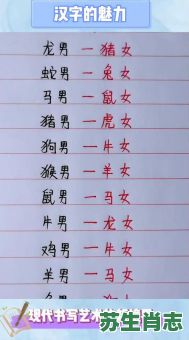 汉字的魅力
龙男一猪女
蛇男一兔女
马男一鼠女
猪男一虎女
狗男一牛女
猴男一羊女
鼠男一马女
牛男一龙女
鸡男一牛女
羊男一马女
现代书写艺术
苏生肖志